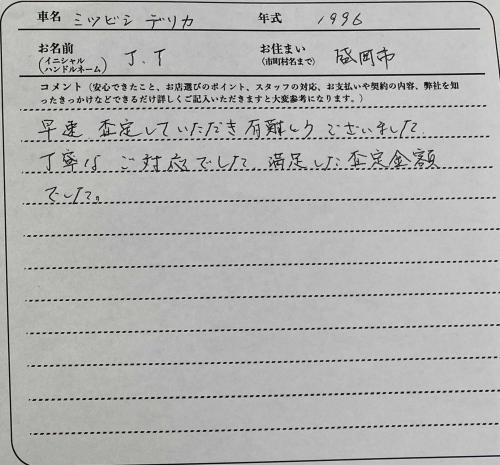 車名 ミツビシ デリカ 年式 1996
お名前 (イニシャル ハンドルネーム) J.T お住まい (市町村名まで) 盛岡市
コメント（安心できたこと、お店選びのポイント、スタッフの対応、お支払いや契約の内容、弊社を知
ったきっかけなどできるだけ詳しくご記入いただきますと大変参考になります。）
早速 査定していただき有難うございました
丁寧な ご対応でした 満足した査定金額
でした。